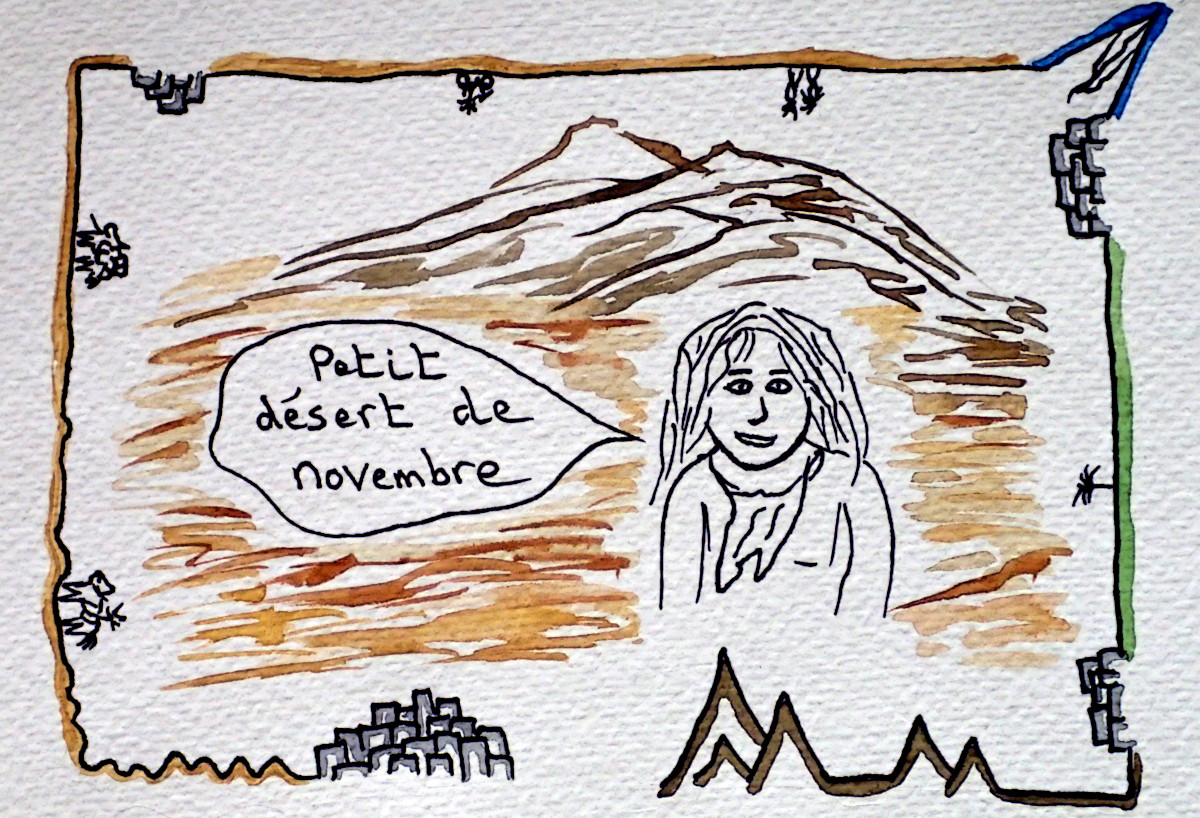 Petit
désert de
novembre